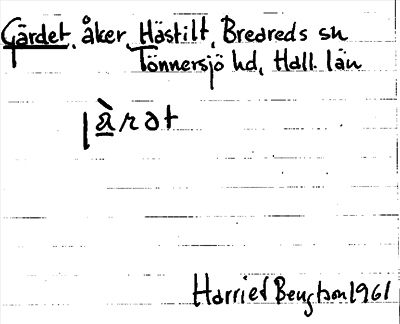 Gärdet, åker, Hästilt, Breareds sn
Tönnersjö hd, Hall. län
Harriet Bengtson 1961